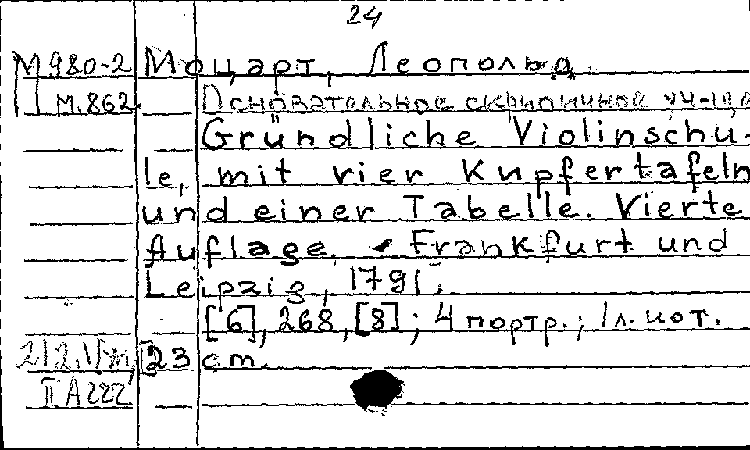 24
М980-2 Моцарт, Леопольд.
М.862 Основательное скрипичное уч-ще
Gründliche Violinschu-
le, mit vier Kupfertafeln
und einer Tabelle. Vierte
Auflage. - Frankfurt und
Leipzig, 1791.
[6], 268, [8]; 4 портр.; 1 л. нот.
23 cm.
II A 222